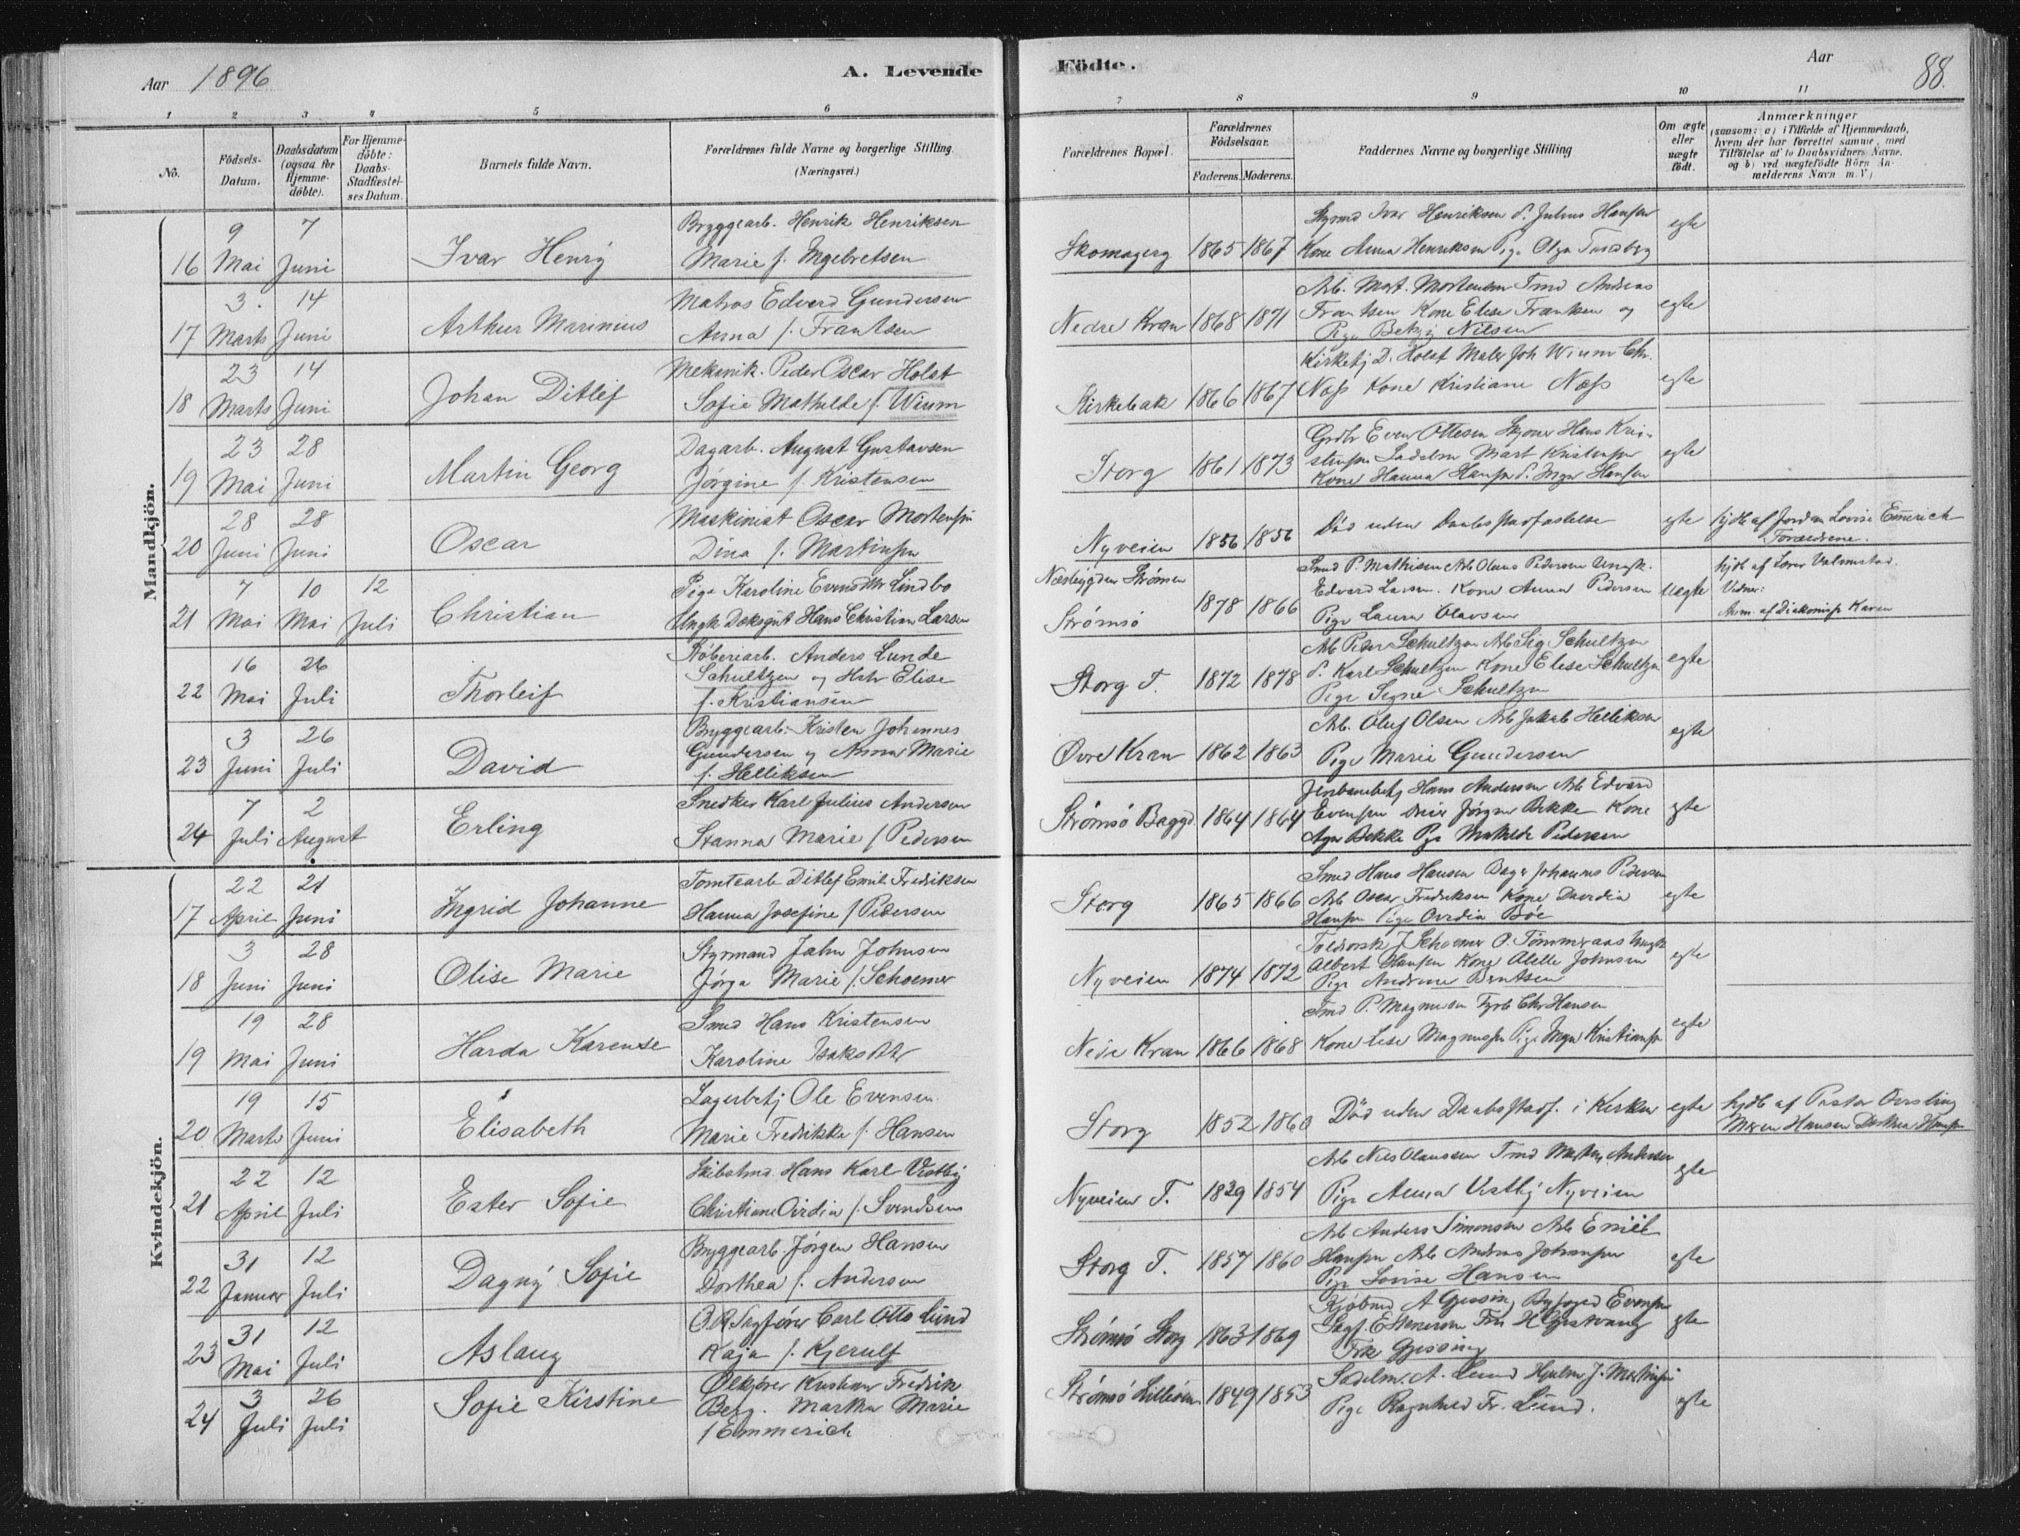 Aar 1896
A. Levende
Födte.
Aar
88.
1 2 3 4 5 6 7 8 9 10 11
No.
Födsels-Datum.
Daabsdatum (ogsaa för Hjemme-döbte).
For Hjemme-døbte: Daabs-Stadfæstelses Datum.
Barnets fulde Navn.
Forældrenes fulde Navne og borgerlige Stilling (Næringsvei.)
Forældrenes Bopæl.
Forældrenes Födselsaar.
Faderens. Moderens.
Faddernes Navne og borgerlige Stilling
Om ægte eller uægte födt.
Anmærkninger
(saasom: a) i Tilfælde af Hjemmedaab, hvem der har forrettet samme, med Tilföielse af to Daabsvidners Navne, og b) ved uægtefödte Börn Anmelderens Navn m. V.)
Mandkjön.
16 9 Mai 7 Juni Ivar Henry
Bryggearb. Henrik Henriksen
Marie f. Ingebretsen
Skomagerg 1865 1867
Styrmd Ivar Henriksen S. Julius Hansen
Kone Anna Henriksen Pige Olga
egte
17 3. Marts 14 Juni Arthur Marinius
Matros Edvard Gundersen
Anna f. Frantsen
Nedre Kran 1868 1871
Arb. Mort. Mortensen Tmd Andreas
Frantsen Kone Elise Frantsen og
Pige Betzy Nilsen
egte
18 23 Marts 14 Juni Johan Ditlef
Mekanik. Peder Oscar Holst
Sofie Mathilde f. Wium
Kirkebak 1866 1867
Kirketj D. Holst Maler Joh Wium Chr.
Næss Kone Kristiane Næss
egte
19 23 Mai 28 Juni Martin Georg
Dagarb. August Gustavsen
Jørgine f. Kristensen
Storg 1861 1873
Grdbr Even Ottesen Hans Kri-
stensen Mart Kristensen
Kone Hanna Hansen S. Hansen
egte
20 28 Juni 28 Juni Oscar
Maskinist Oscar Mortensen
Dina f. Martinsen
Nyveien 1856 1856
Død uden Daabsstadfæstelse
egte
hjdb af Jordm Lovise Emerich
Forældrene.
21 7 Mai 10 Mai 12 Juli Christian
Pige Karoline Evensdtr Lindbo
Ungk Dæksgut Hans Christian Larsen
Næsbygden Strømsø
Strømsø 1878 1866
Smed P. Mathisen Arb Olaus Pedersen Ungk.
Edvard Larsen. Kone Anna Pedersen
Pige Laura Olavsen
uegte
hjdb af Lærer Valmestad.
Vidner:
Anm. af Diakonisse Karen
22 16 Mai 26 Juli Thorleif
Støberiarb. Anders Lunde
Schultzen og Hstr Elise
f. Kristiansen
Storg T. 1872 1878
Arb Peter Schultzen Arb Sig Schultzen
S. Karl Schultzen Kone Elise Schultzen
Pige Signe Schultzen
egte
23 3 Juni 26 Juli David
Bryggearb. Kristen Johannes
Gundersen og Anna Marie
f. Helliksen
Øvre Kran 1862 1863
Arb. Oluf Olsen Arb Jakob Helliksen
Pige Marie Gundersen
egte
24 7 Juli 2 August Erling
Snedker Karl Julius Andersen
Stanna Marie f Pedersen
Strømsø Baggd 1864 1864
Jernbanebetj Hans Andersen Arb Edvard
Evensen Jørgen Bekke Kone
Bekke Pige Mathilde Pedersen
egte
Kvindekjön.
17 22 April 21 Juni Ingrid Johanne
Tomtearb Ditlef Emil Fredriksen
Hanna Josefine f Pedersen
Storg 1865 1866
Smed Hans Hansen Dagar Johannes Pedersen
Arb Oscar Fredriksen Kone
Hansen Pige Ovidia Böe
egte
18 3 Juni 28 Juni Olise Marie
Styrmand Jahn Johnsen
Jørga Marie f. Schoemer
Nyveien 1874 1872
Toldrorsk J Schoemer O. Tømmeraas Ungk
Albert Hansen Kone Alette Johnsen
Pige Andrine Berntsen
egte
19 19 Mai 28 Juni Harda Karense
Smed Hans Kristensen
Karoline Isaksdtr
Nedre Kran 1866 1868
Smd P. Magnusen Fyrb Chr Hansen
Kone Lise Magnussen Pige Inga Kristiansen
egte
20 19 Marts 15 Juni Elisabeth
Lagerbetj Ole Evensen
Marie Fredrikke f. Hansen
Storg 1852 1860
Død uden Daabsstadf. i Kirken
egte
hjdb af Pastor
Maren Hansen Dorthea Hansen
21 22 April 12 Juli Ester Sofie
Skibstmd Hans Karl Vestby
Christiane Ovidia f. Svendsen
Nyveien T. 1829 1854
Arb Nils Olaussen Tmd Morten Andersen
Pige Anna Vestby Nyveien
egte
22 31 Januar 12 Juli Dagny Sofie
Bryggearb. Jørgen Hansen
Dorthea f. Andersen
Storg T. 1857 1860
Arb Anders Simonsen Arb Emil
Hansen Arb Andreas Johansen
Pige Lovise Hansen
egte
23 31 Mai 12 Juli Aslaug
O.R. Sagfører Carl Otto Lund
Kaja f. Kjerulf
Strømsø Storg 1863 1869
Kjøbmd A Gjessing Byfoged Evensen
Sagf. E Stenersen Fru
Frk Gjessing
egte
24 3 Juli 26 Juli Sofie Kirstine
Ølkjører Kristian Fredrik
Berg. Martha Marie
f Emmerich
Strømsø Lillestrøm 1849 1853
Sadelm. A. Lund Hjulm J. Martinsen
Pige Ragnhild Fr. Lund.
egte